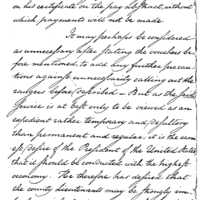 on his certificate on the pay abstract, without
which payments will not be made.
It may perhaps be considered
as unnecessary after stating the vouchers be-
fore mentioned to add any further precau-
tions against unnecessarily calling out the
rangers before described — But as the said
service is at best only to be viewed as an
expedient rather temporary and desultory
than permanent and regular, it is the earn-
est desire of the President of the United States
that it should be conducted with the highest
economy. He therefore has desired that
the county Lieutenants may be strongly im-